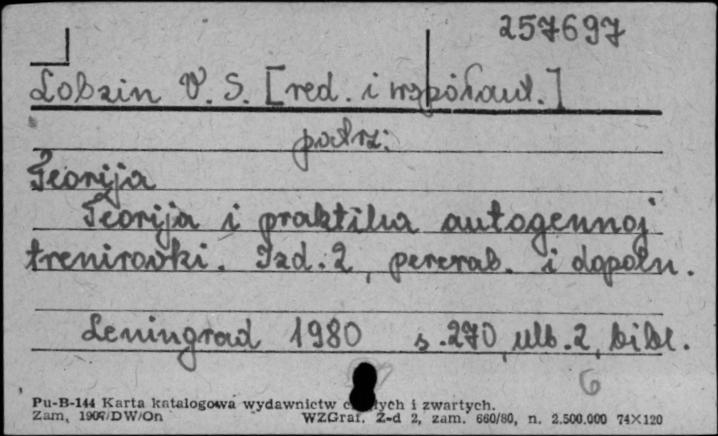 257697
Lobzin V. S. [red. i współaut.]
patrz:
Teorija
Teorija i praktika autogennoj
trenirovki. Izd. 2, pererab. i dopoln.
Leningrad 1980 s. 270, ulb. 2, bibl.
6
Pu-B-144 Karta katalogowa wydawnictw i zwartych.
Zam, /DW/On WZGraf. Z-d 2, zam. 660/80, n. 2.500.000 74X120